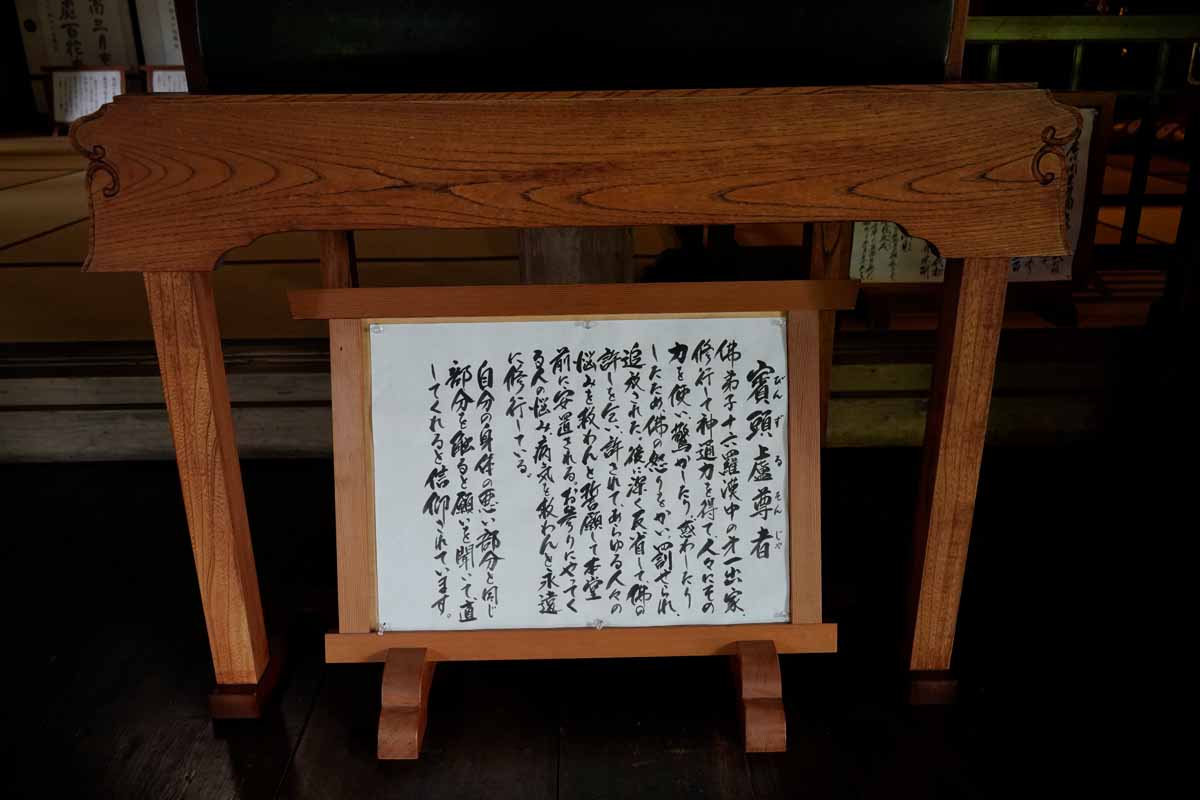 賓頭盧尊者
びんずるそんじゃ
佛弟子十六羅漢中の才一出家、
修行して神通力を得て、人々にその
力を使い、驚かしたり、惑わしたり
したため佛の怒りをかい罰せられ、
追放された。後に深く反省して佛の
許しを乞い、許されて、あらゆる人々の
悩みを救わんと誓願して本堂
前に安置される。お参りにやってく
る人の悩み、病気を救わんと永遠
に修行している。
自分の身体の悪い部分と同じ
部分を触ると願いを聞いて直
してくれると信仰されています。